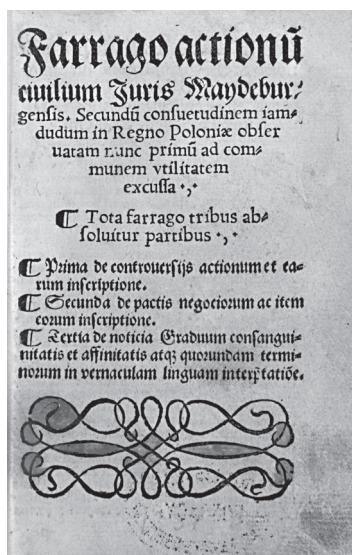 Farrago actionū
ciuilium Juris Maydebur⸗
gensis. Secundū consuetudinem iam⸗
dudum in Regno Poloniæ obser
uatam nunc primū ad com⸗
munem vtilitatem
excussa ·,·
¶ Tota farrago tribus ab⸗
soluitur partibus ·,·
¶ Prima de controuersijs actionum et ea⸗
rum inscriptione.
¶ Secunda de pactis negociorum ac item
eorum inscriptione.
¶ Tertia de noticia Graduum consangui⸗
nitatis et affinitatis atqꝫ quorundam termi⸗
norum in vernaculam linguam interp̄tatiōe.